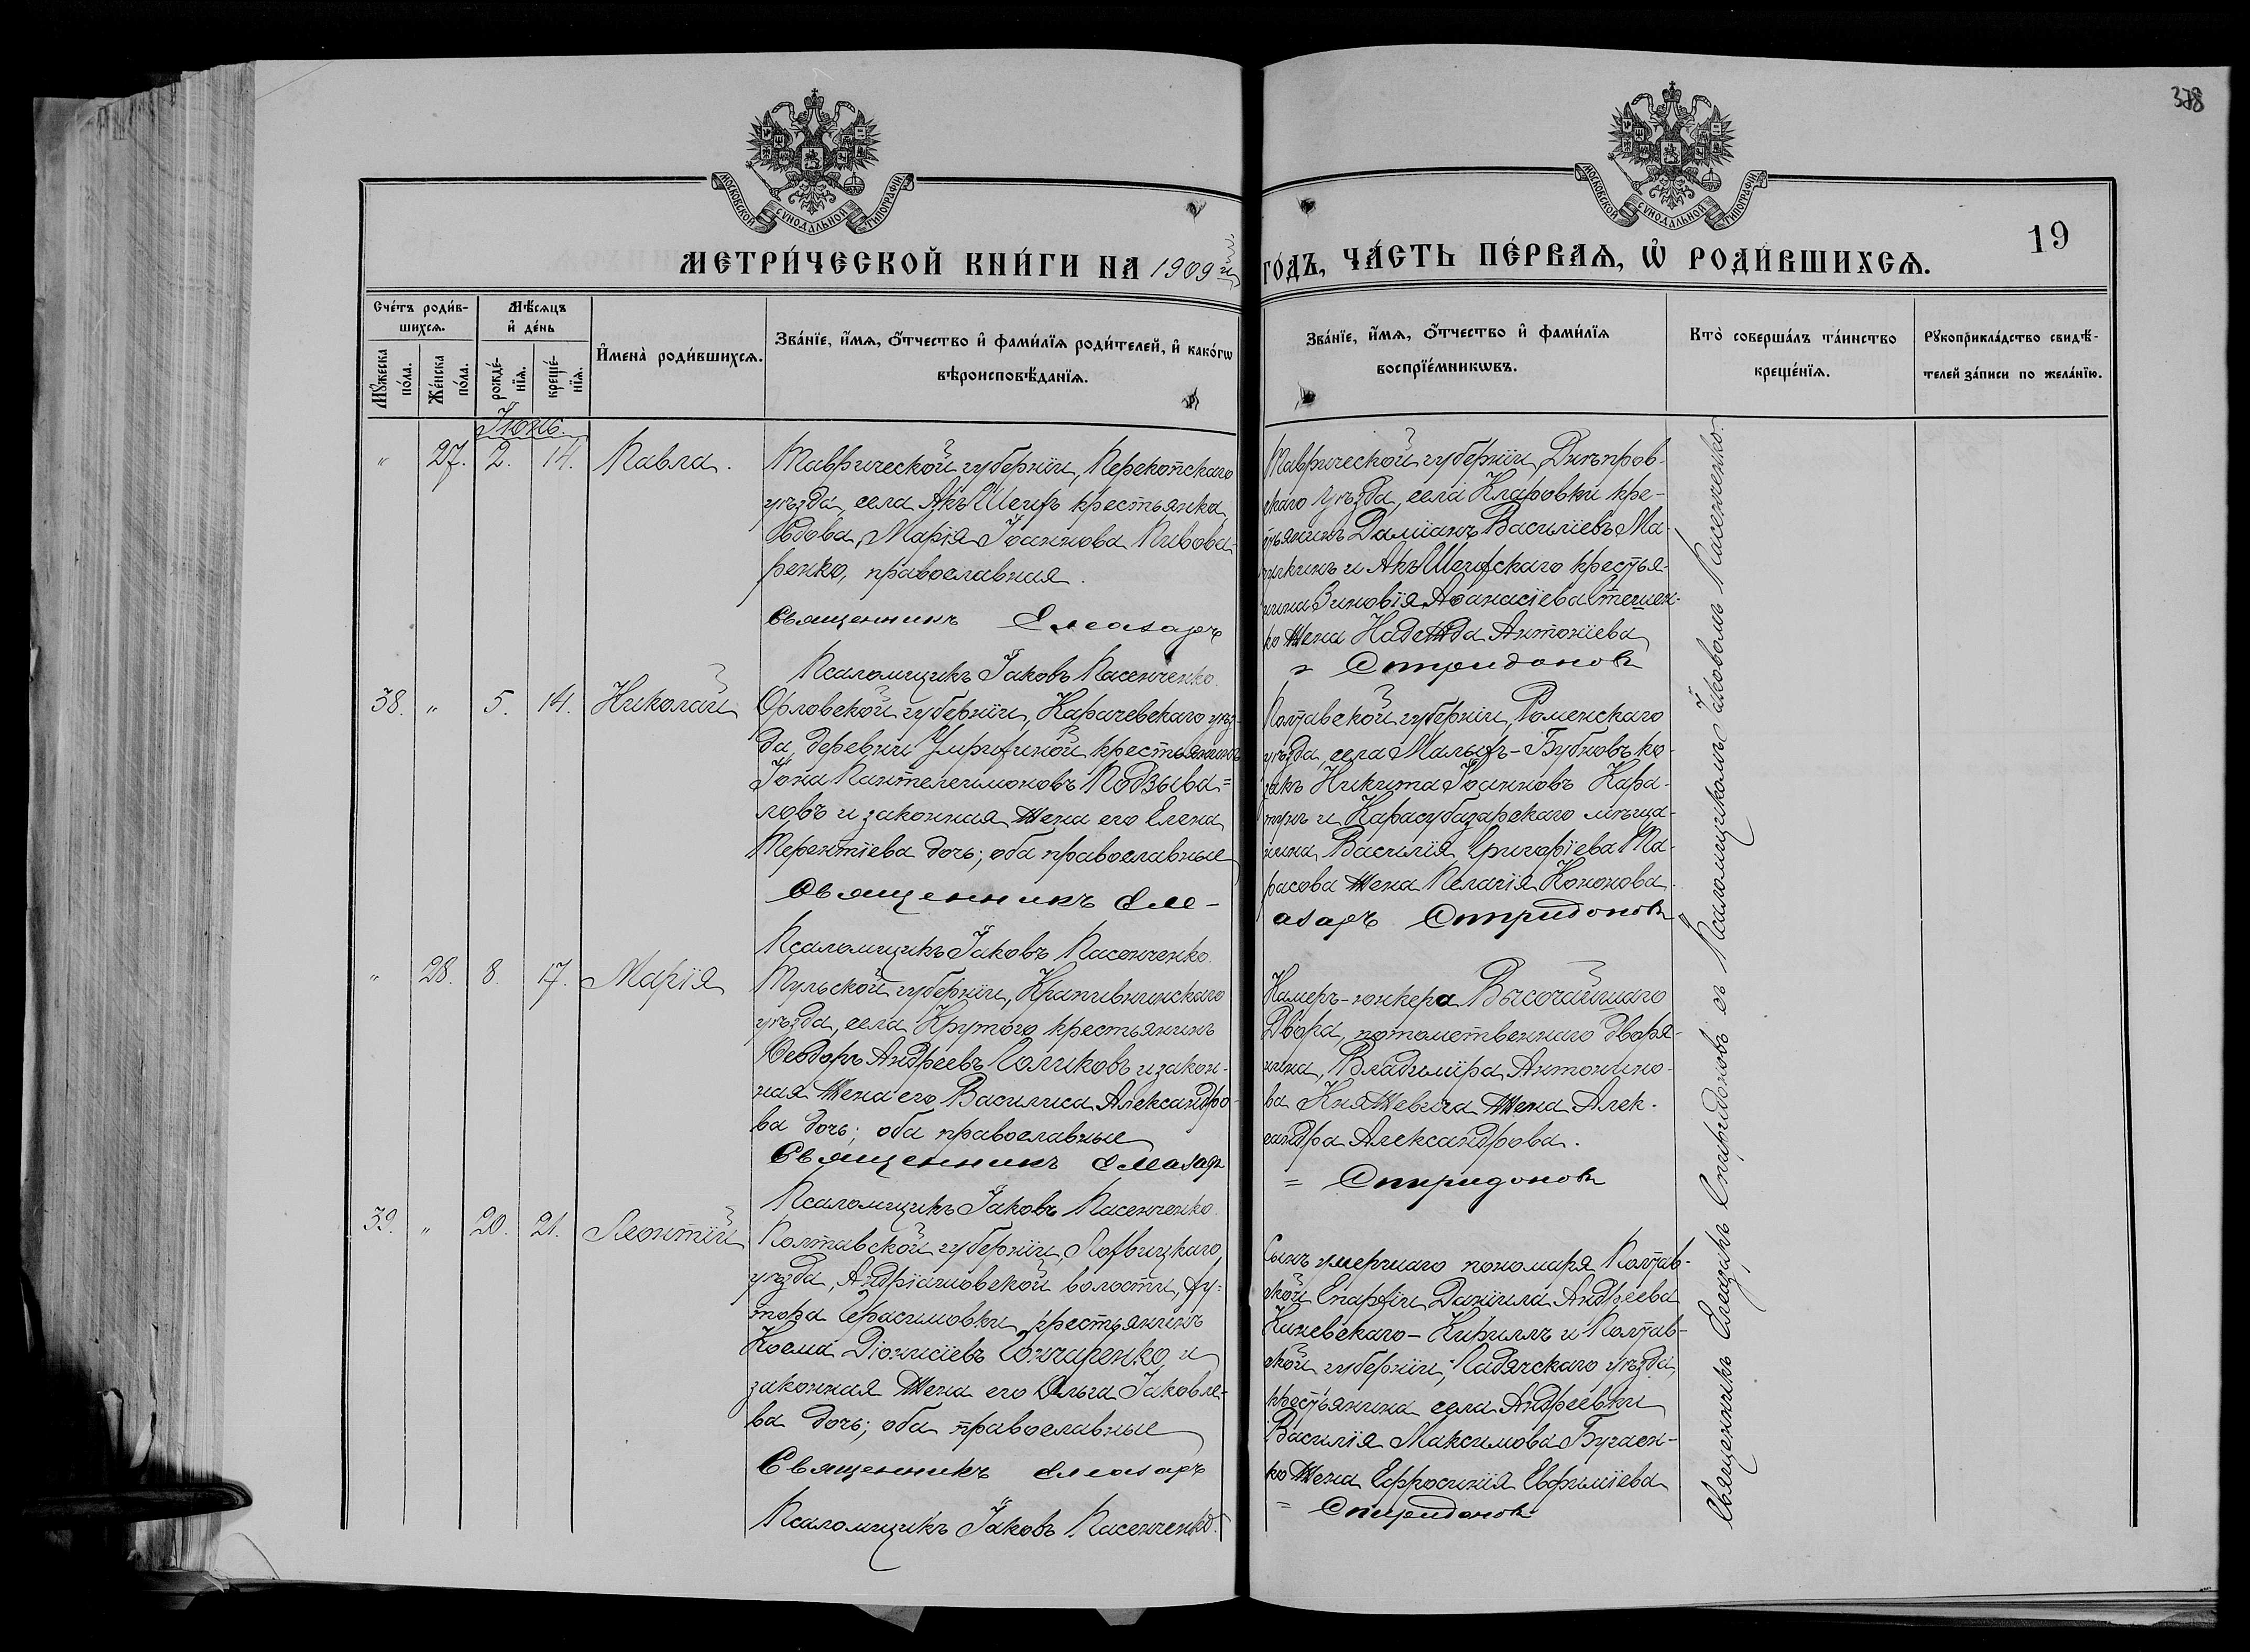 378
МОСКОВСКОЙ СУНОДАЛЬНОЙ ТИПОГРАФІИ
МОСКОВСКОЙ СУНОДАЛЬНОЙ ТИПОГРАФІИ
19
МЕТРИ́ЧЕСКОЙ КНИ́ГИ НА 1909й ГО́ДЪ, ЧА́СТЬ ПЕ́РВАѦ, Ѽ РОДИ́ВШИХСѦ.
Сче́тъ роди́в-
шихсѧ.
Мꙋ́жеска
по́ла.
Же́нска
по́ла.
Мѣ́сѧцъ
и҆ де́нь
рожде́-
нїѧ.
креще́-
нїѧ.
И҆мена̀ роди́вшихсѧ.
Зва́нїе, и҆́мѧ, ѻ҆́тчество и҆ фами́лїѧ роди́телей, и҆ како́гѡ
вѣроисповѣ́данїѧ.
Зва́нїе, и҆́мѧ, ѻ҆́тчество и҆ фами́лїѧ
воспрїе́мникѡвъ.
Кто̀ соверша́лъ та́инство
креще́нїѧ.
Рꙋкоприкла́дство свидѣ́-
телей за́писи по жела́нїю.
Іюнь.
" 27. 2. 14. Павла.
Таврической губерніи, Перекопскаго
уѣзда, села Акъ Шеихъ крестьянка
вдова, Марія Іоаннова Пивова-
ренко, православная.
Священникъ Елеазаръ
Псаломщикъ Іаковъ Пасенченко.
Таврической губерніи, Днѣпров-
скаго уѣзда, села Кларовки кре-
стьянинъ Даміанъ Васильевъ Ма-
и Акъ Шеихскаго крестья-
нина Зиновія Аѳанасіева Стешен-
ко жена Надежда Антоніева
= Спиридоновъ
38. " 5. 14. Николай
Орловской губерніи, Карачевскаго уѣз-
да, деревни Умрихиной крестьянинъ
Іона Пантелеимоновъ Подзыва=
ловъ и законная жена его Елена
Терентіева дочь; оба православные
Священникъ Еле-
Псаломщикъ Іаковъ Пасенченко.
Полтавской губерніи, Роменскаго
уѣзда, села Малыхъ-Бубновъ ко-
закъ Никита Іоанновъ Кара-
и Карасубазарскаго мѣща-
нина Василія Григоріева Та-
расова жена Пелагія Кононова.
азаръ Спиридоновъ
" 28. 8. 17. Марія
Тульской губерніи, Крапивнинскаго
уѣзда, села Крутого крестьянинъ
Ѳеодоръ Андреевъ Голиковъ и закон-
ная жена его Василиса Александро-
ва дочь; оба православные
Священникъ Елеазаръ
Псаломщикъ Іаковъ Пасенченко.
Камеръ-юнкера Высочайшаго
Двора, потомственнаго дворя-
нина, Владиміра Антонино-
ва Княжевича жена Алек-
сандра Александрова.
= Спиридоновъ
39. " 20. 21. Леонтій
Полтавской губерніи, Лохвицкаго
уѣзда, Андріяшовской волости, ху-
тора Герасимовки крестьянинъ
Косма Діонисіевъ Гончаренко, и
законная жена его Ольга Іаковле-
ва дочь; оба православные
Священникъ Елеазаръ
Псаломщикъ Іаковъ Пасенченко.
Сынъ умершаго пономаря Полтав-
ской Епархіи Даніила Андреева
Каневскаго - Кириллъ и Полтав-
ской губерніи, Гадячскаго уѣзда,
крестьянина села Андреевки
Василія Максимова Бугаен-
ко жена Ефросинія Евфиміева
= Спиридоновъ
Священникъ Елеазаръ Спиридоновъ съ Псаломщикомъ Іаковомъ Пасенченко.